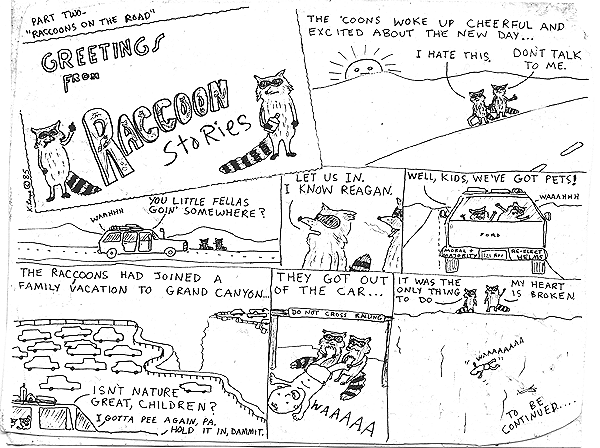 PART TWO-
"RACCOONS ON THE ROAD"
GREETINGS
FROM
RACCOON
StoRies
THE 'COONS WOKE UP CHEERFUL AND
EXCITED ABOUT THE NEW DAY...
I HATE THIS.
DON'T TALK
TO ME.
WAAHHH
YOU LITTLE FELLAS
GOIN' SOMEWHERE?
LET US IN.
I KNOW REAGAN.
WELL, KIDS, WE'VE GOT PETS!
WAAHHH
FORD
MORAL
MAJORITY
RE-ELECT
HELMS
THE RACCOONS HAD JOINED A
FAMILY VACATION TO GRAND CANYON...
ISN'T NATURE
GREAT, CHILDREN?
I GOTTA PEE AGAIN, PA.
HOLD IT IN, DAMMIT.
THEY GOT OUT
OF THE CAR...
DO NOT CROSS RAILING
WAAAAA
IT WAS THE
ONLY THING
TO DO
MY HEART
IS BROKEN.
WAAAAAAA
TO BE
CONTINUED....